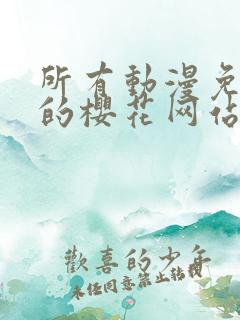 所有動漫免
的櫻花网站
歡喜的少年
未经同意禁止转载